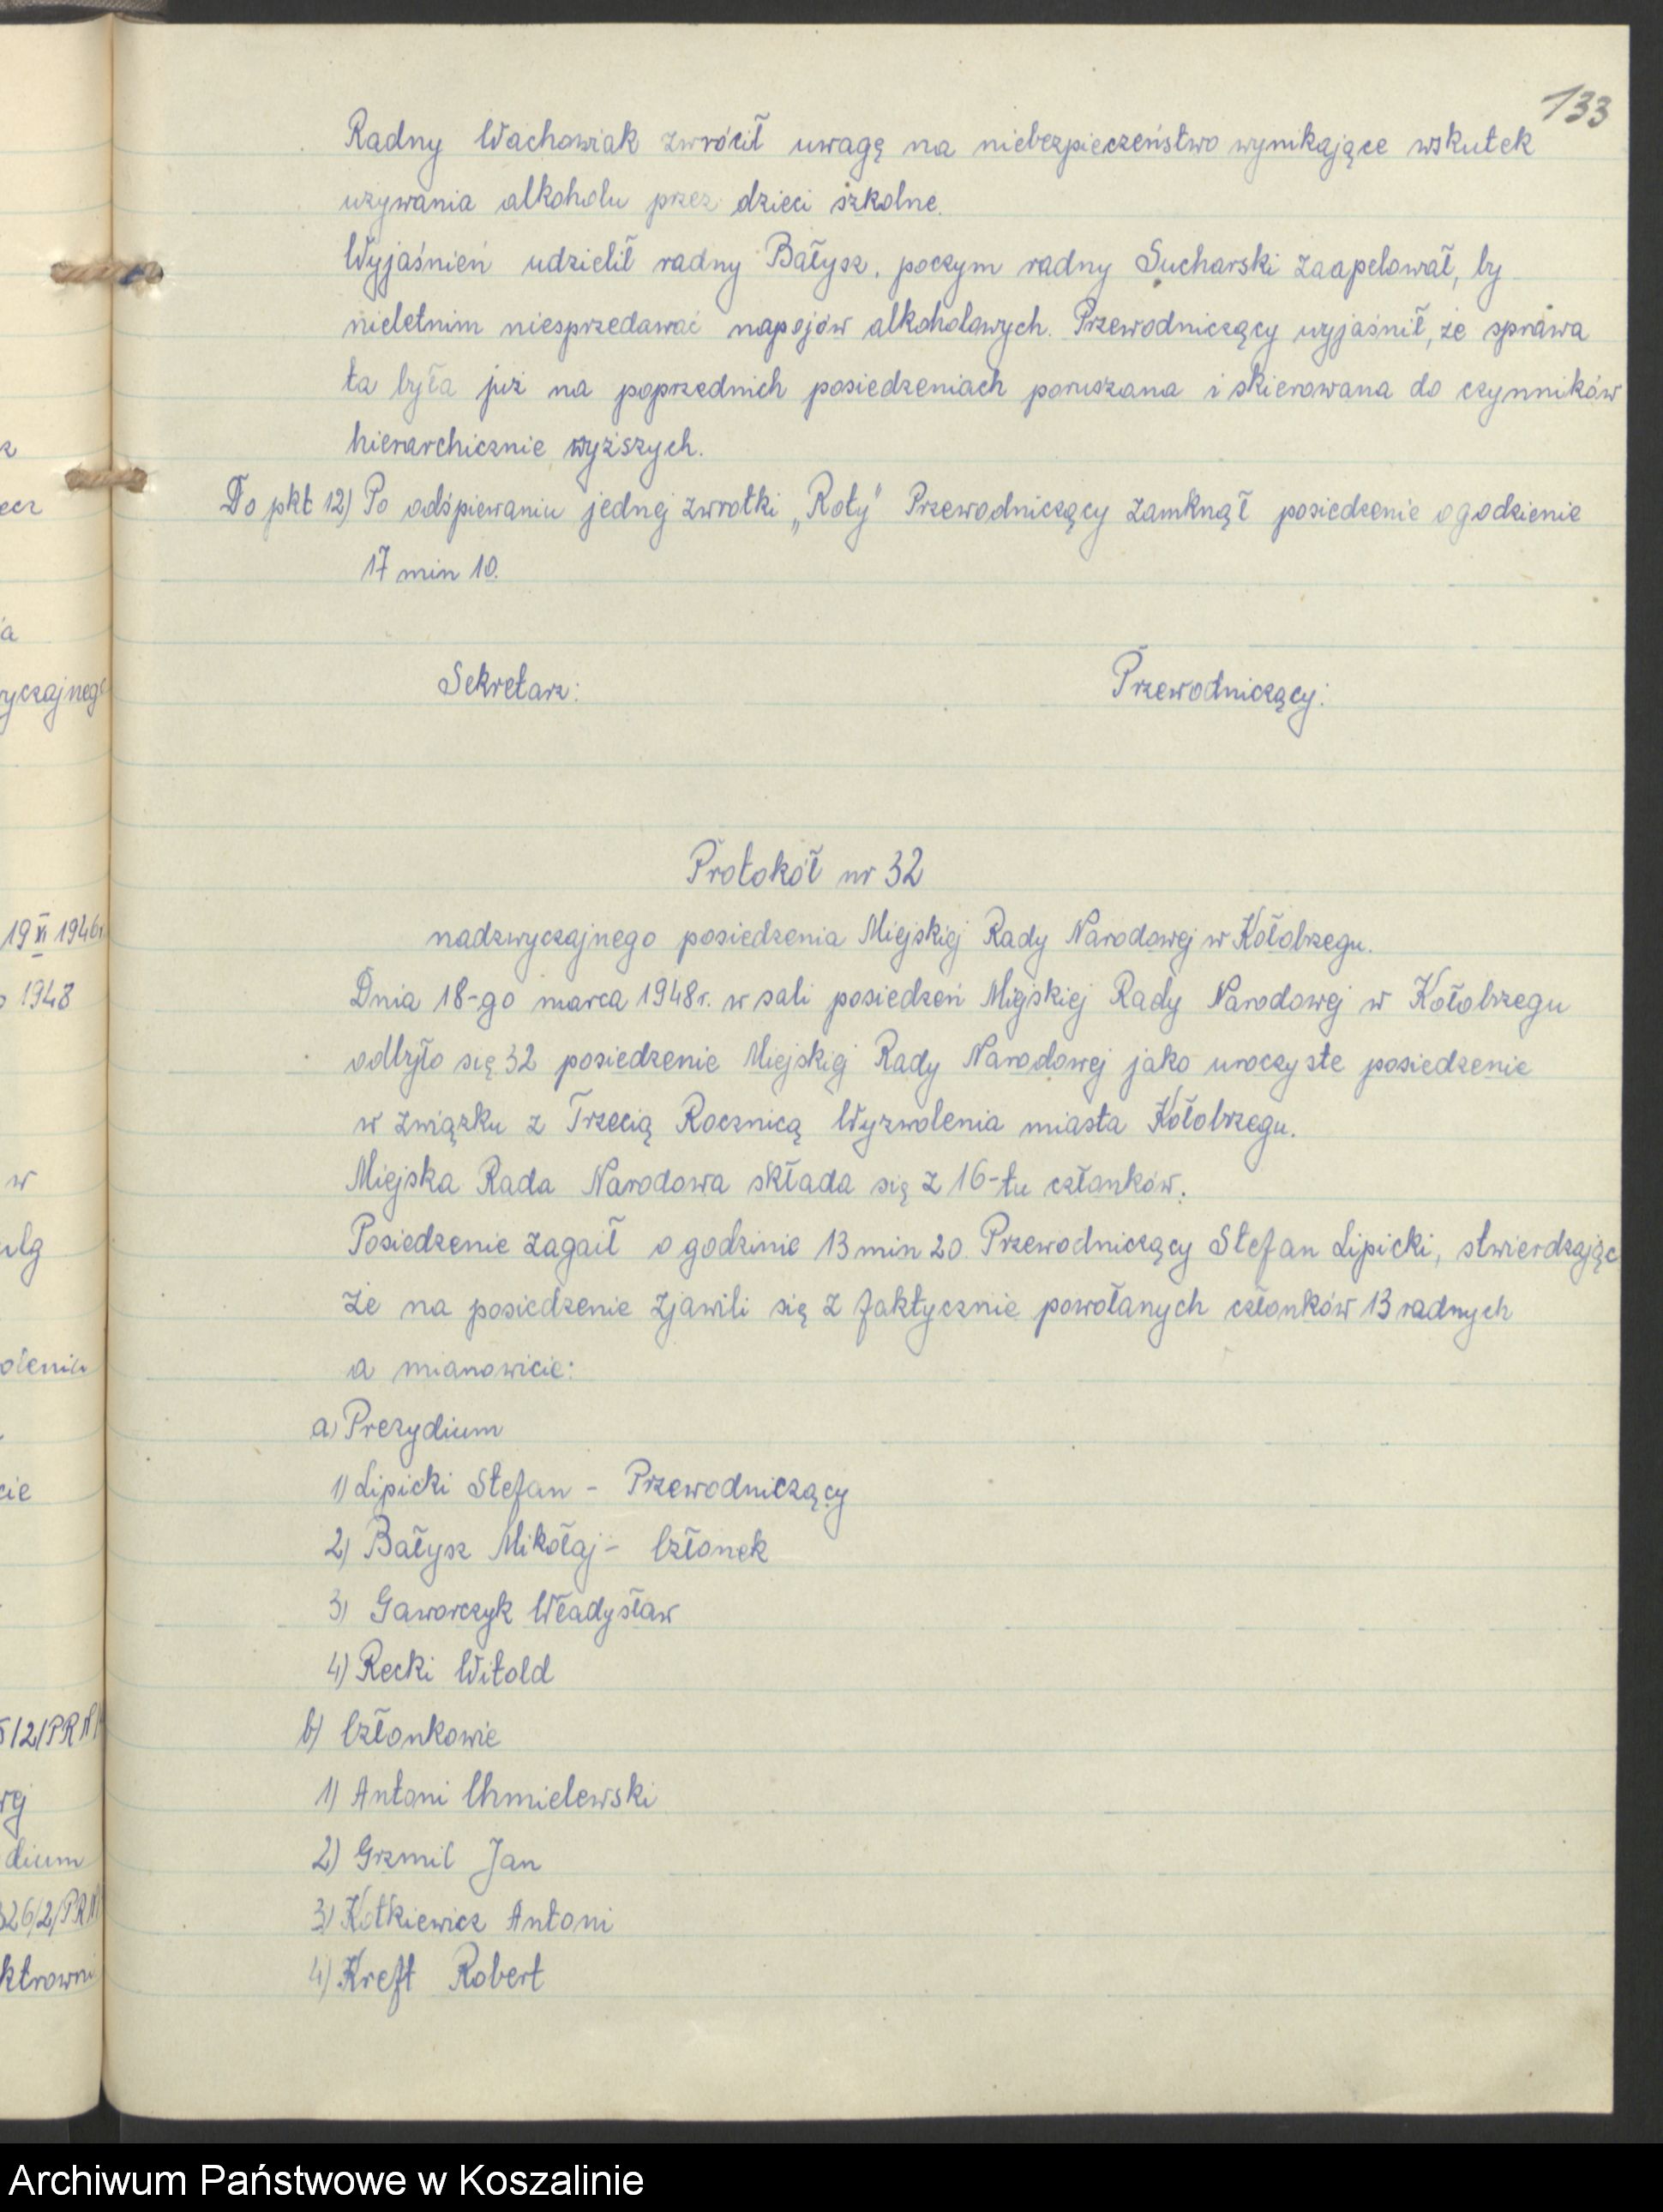 133
Radny Wachowiak zwrócił uwagę na niebezpieczeństwo wynikające wskutek
używania alkoholu przez dzieci szkolne.
Wyjaśnień udzielił radny Bałysz, poczym radny Sucharski zaapelował, by
nieletnim niesprzedawać napojów alkoholowych. Przewodniczący wyjaśnił, że sprawa
ta była już na poprzednich posiedzeniach poruszana i skierowana do czynników
hierarchicznie wyższych.
Do pkt 12) Po odśpiewaniu jednej zwrotki „Roty" Przewodniczący zamknął posiedzenie o godzienie
17 min 10.
Sekretarz: Przewodniczący:
Protokół nr 32
nadzwyczajnego posiedzenia Miejskiej Rady Narodowej w Kołobrzegu.
Dnia 18-go marca 1948r. w sali posiedzeń Miejskiej Rady Narodowej w Kołobrzegu
odbyło się 32 posiedzenie Miejskiej Rady Narodowej jako uroczyste posiedzenie
w związku z Trzecią Rocznicą Wyzwolenia miasta Kołobrzegu.
Miejska Rada Narodowa składa się z 16-tu członków.
Posiedzenie zagaił o godzinie 13 min 20. Przewodniczący Stefan Lipicki, stwierdzając
że na posiedzenie zjawili się z faktycznie powołanych członków 13 radnych
a mianowicie:
a) Prezydium
1) Lipicki Stefan - Przewodniczący
2) Bałysz Mikołaj - Członek
3) Gaworczyk Władysław
4) Recki Witold
b) Członkowie
1) Antoni Chmielewski
2) Grzmil Jan
3) Kotkiewicz Antoni
4) Kreft Robert
ecz
yczajnego
19 XI 1946r
1948
w
ulg
cie
5/2/PRN
dium
326/2/PRN
ktrowni
Archiwum Państwowe w Koszalinie